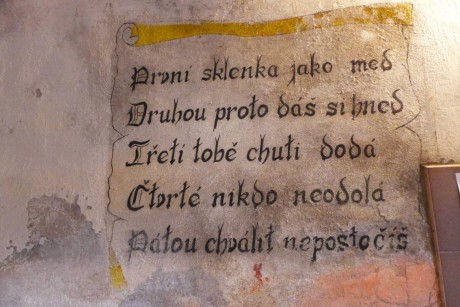 První sklenka jako med
Druhou proto dáš si hned
Třetí tobě chuti dodá
Čtvrté nikdo neodolá
Pátou chválit nepostačíš